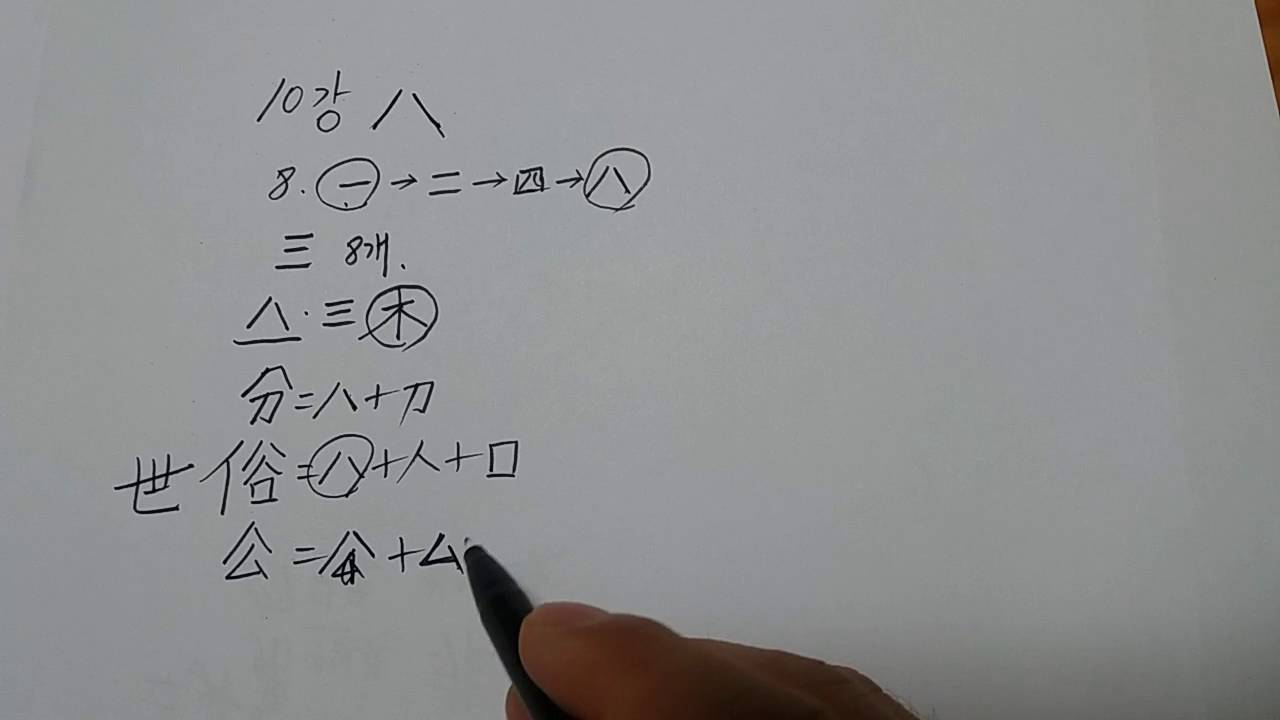 10강 八
8. 一→二→四→八
三 8개.
八·三木
分=八+刀
世俗=八+人+口
公=八+厶